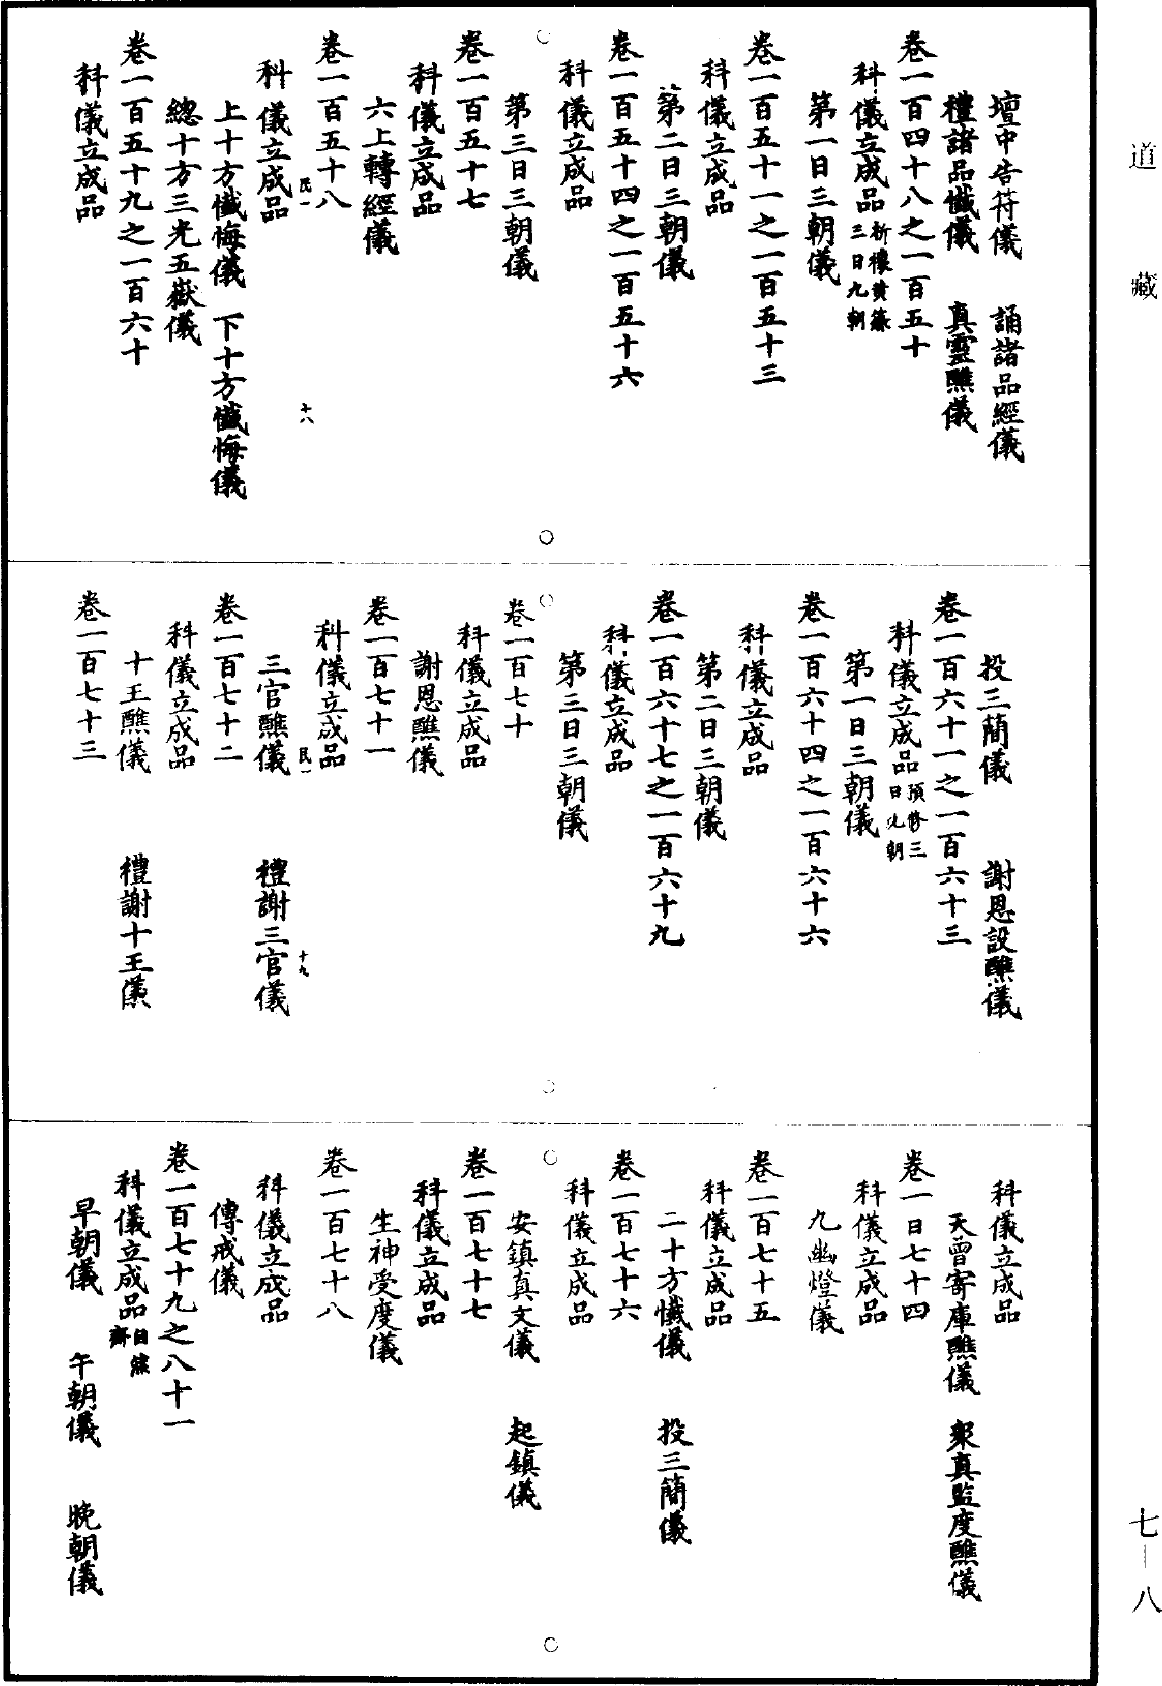 道藏
壇中告符儀　誦諸品經儀
禮諸品懺儀　真靈醮儀
卷一百四十八之一百五十
科儀立成品祈禳黃籙三日九朝
第一日三朝儀
卷一百五十一之一百五十三
科儀立成品
第二日三朝儀
卷一百五十四之一百五十六
科儀立成品
第三日三朝儀
卷一百五十七
科儀立成品
六上轉經儀
卷一百五十八
民一　十八
科儀立成品
上十方懺悔儀　下十方懺悔儀
總十方三光五嶽儀
卷一百五十九之一百六十
科儀立成品
投三簡儀　謝恩設醮儀
卷一百六十一之一百六十三
科儀立成品預修三日九朝
第一日三朝儀
卷一百六十四之一百六十六
科儀立成品
第二日三朝儀
卷一百六十七之一百六十九
科儀立成品
第三日三朝儀
卷一百七十
科儀立成品
謝恩醮儀
卷一百七十一
科儀立成品
民一　十九
三官醮儀　禮謝三官儀
卷一百七十二
科儀立成品
十王醮儀　禮謝十王儀
卷一百七十三
科儀立成品
天曹寄庫醮儀　眾真監度醮儀
卷一日七十四
科儀立成品
九幽燈儀
卷一百七十五
科儀立成品
二十方懺儀　投三簡儀
卷一百七十六
科儀立成品
安鎮真文儀　起鎮儀
卷一百七十七
科儀立成品
生神受度儀
卷一百七十八
科儀立成品
傳戒儀
卷一百七十九之八十一
科儀立成品自然齋
早朝儀　午朝儀　晚朝儀
七—八